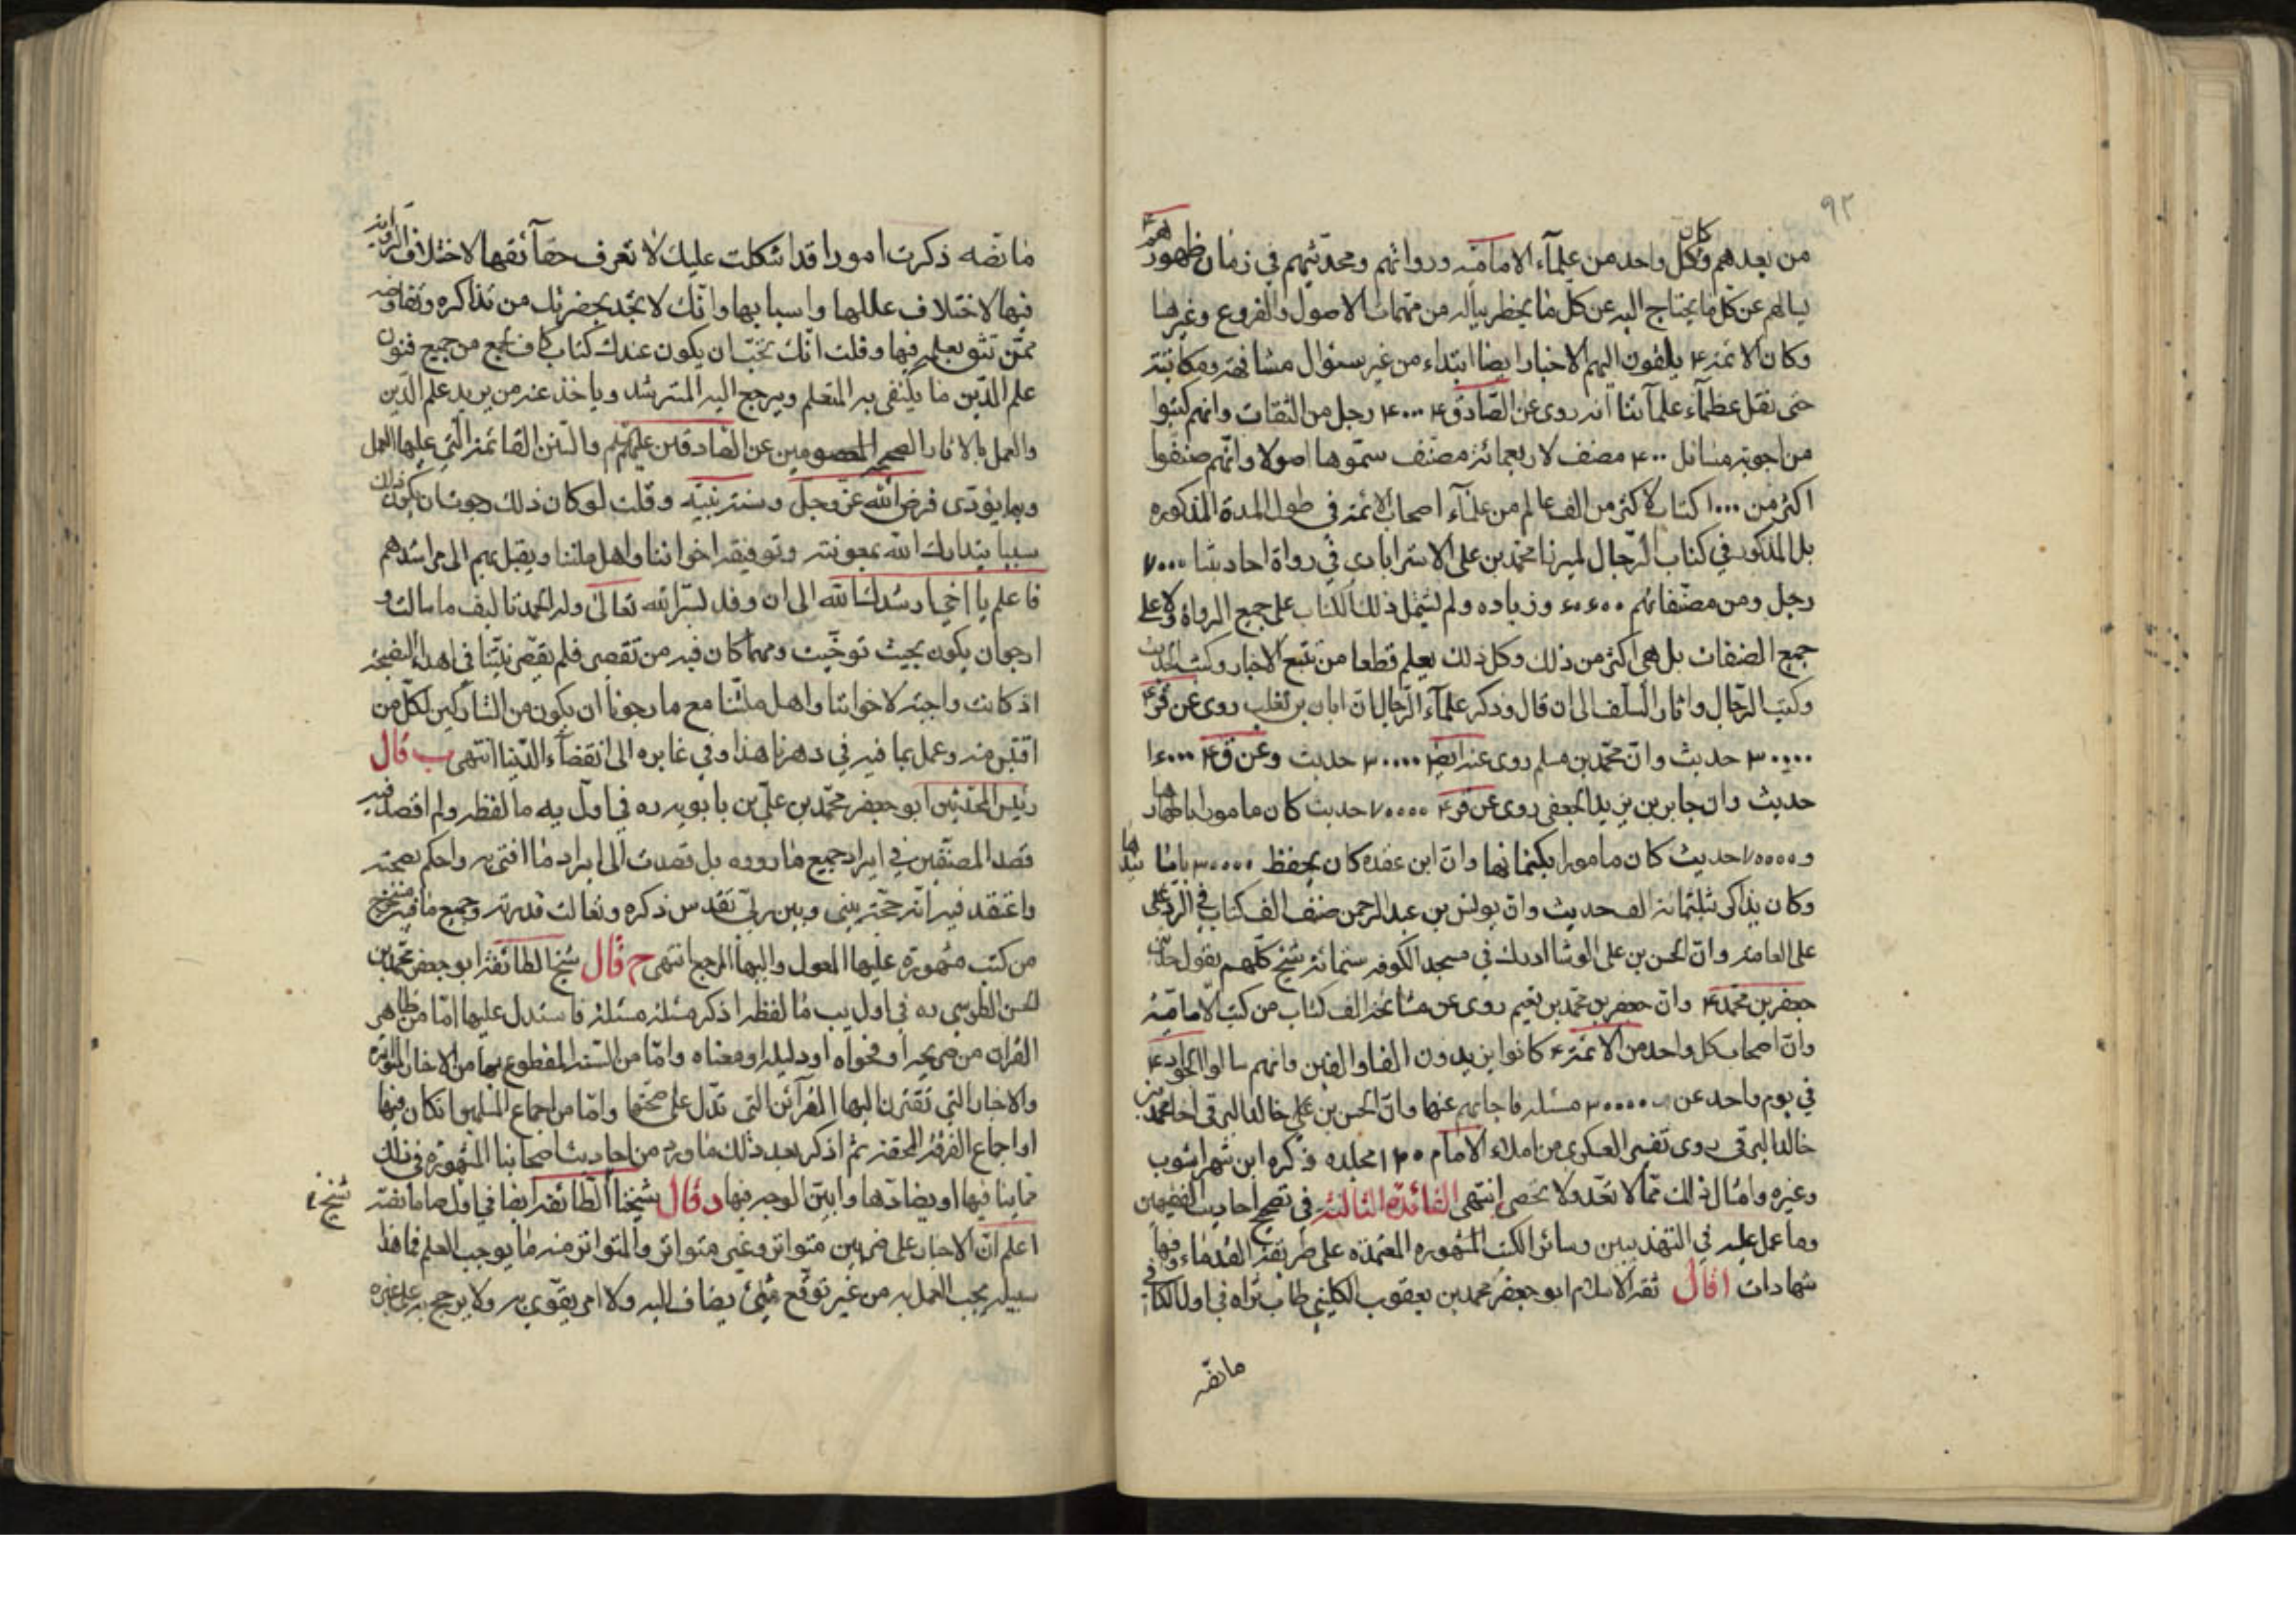 ٩٢
من بعدهم وكان كل واحد من علمآء الامامية ورواتهم ومحدثيهم في زمان ظهورهم ع
يسالهم عن كل ما يحتاج اليه عن كل ما يخطر بباله من مهمات الاصول والفروع وغيرها
وكان الائمة ع يلقون اليهم الاخبار ايضا ابتداء من غير سئوال مشافهة ومكاتبة
حتى نقل عظمآء علمآئنا انه روى عن الصادق ع ٤٠٠٠ رجل من الثقات وانهم كتبوا
من اجوبة مسائل ٤٠٠ مصنف لاربعمائة مصنف سموها اصولا وانهم صنفوا
اكثر من ١٠٠٠ كتاب لاكثر من الف عالم من علمآء اصحاب الائمة في طول المدة المذكوره
بل المذكور في كتاب الرجال لميرزا محمد بن على الاسترابادى في رواة احاديثنا ٧٠٠٠
رجل ومن مصنفاتهم ٦٦٠٠ وزياده ولم يشمل ذلك الكتاب على جميع الرواة ولا على
جميع المصنفات بل هى اكثر من ذلك وكل ذلك يعلم قطعا من تتبع الاخبار وكتب الحديث
وكتب الرجال واثار السلف الى ان قال وذكر علمآء الرجال ان ابان بن تغلب روى عن ق ع
٣٠٠٠٠ حديث وان محمد بن مسلم روى عنه ايض ٣٠٠٠٠ حديث وعن ق ع ١٦٠٠٠
حديث وان جابر بن يزيد الجعفى روى عن قر ع ٧٠٠٠٠ حديث كان مامورا باظهارها
و ٧٠٠٠٠ حديث كان مامورا بكتمانها وان ابن عقده كان يحفظ ٣٠٠٠٠ باسانيدها
وكان يذاكر بثلثمائة الف حديث وان يونس بن عبد الرحمن صنف الف كتاب في الرد على
على العامة وان الحسن بن على الوشا ادرك في مسجد الكوفه ستمائة شيخ كلهم يقول حدثنى
جعفر بن محمد ع وان جعفر بن محمد بن نعيم روى عن مشائخه الف كتاب من كتب الامامية
وان اصحاب كل واحد من الائمة ع كانوا يزيدون الفا والفين وانهم سالوا الجواد ع
في يوم واحد عن ٣٠٠٠٠ مسئلة فاجابهم عنها وان الحسن بن على خالد البرقى اخا محمد بن
خالد البرقى روى تفسير العسكرى من املاء الامام ١٢٠ مجلده ذكره ابن شهراشوب
وغيره وامثال ذلك مما لا تعد ولا تحصى انتهى الفائدة الثالثة في تصحيح احاديث الفقيهين
وما عمل عليه في التهذيبين وسائر الكتب المشهوره المعتمده على طريقة القدماء وفيها
شهادات ا قال ثقة الاسلام ابو جعفر محمد بن يعقوب الكلينى طاب ثراه في اول الكافى
ما نصه
ما نصه ذكرت امورا قد اشكلت عليك لا تعرف حقآئقها لاختلاف الرواية
فيها لاختلاف عللها واسبابها وانك لا تجد بحضرتك من تذاكره وتفاوضه
ممن تثق بعلمه فيها وقلت انك تحب ان يكون عندك كتاب كاف يجمع من جميع فنون
علم الدين ما يكتفى به المتعلم ويرجع اليه المسترشد وياخذ عنه من يريد علم الدين
والعمل بالاثار الصحيحه عن الصادقين عليهم لم والسنن القائمة التى عليها العمل
وبها يؤدى فرض الله عز وجل وسنة نبيه وقلت لو كان ذلك رجوت ان يكون ذلك
سببا يتدارك الله بمعونته وتوفيقه اخواننا واهل ملتنا ويقبل بهم الى مراشدهم
فاعلم يا اخى ارشدك الله الى ان وقد يسر الله تعالى وله الحمد تاليف ما سالت و
ارجو ان يكون بحيث توخيت ومهما كان فيه من تقصير فلم يقصر نيتنا في اهداء النصيحة
اذ كانت واجبة لاخواننا واهل ملتنا مع ما رجونا ان يكون من الشاركين لكل من
اقتبس منه وعمل بما فيه في دهرنا هذا وفي غابره الى انقضآء الدنيا انتهى ب قال
رئيس المحدثين ابو جعفر محمد بن على بن بابويه ره في اول يه ما لفظه ولم اقصد فيه
قصد المصنفين في ايراد جميع ما رووه بل قصدت الى ايراد ما افتى به واحكم بصحته
واعتقد فيه انه حجة بينى وبين ربى تقدس ذكره وتعالت قدرته وجميع ما فيه مستخرج
من كتب مشهورة عليها المعول واليها المرجع انتهى ج قال شيخ الطائفة ابو جعفر محمد بن
الحسن الطوسى ره في اول يب ما لفظه اذكر مسئلة مسئلة فاستدل عليها اما من ظاهر
القران من صريحه او فحواه او دليله او معناه واما من السنة المقطوع بها من الاخبار المتواترة
والاخبار التى تقترن اليها القرآئن التى تدل على صحتها واما من اجماع المسلمين ان كان فيها
او اجماع الفرقة المحقة ثم اذكر بعد ذلك ما ورد من احاديث اصحابنا المشهورة في ذلك
ما ينافيها او يضادها وابين الوجه فيها د قال شيخنا الطائفة ايضا في اول صا ما نصه
شيخ
اعلم ان الاخبار على ضربين متواتر وغير متواتر والمتواتر منه ما يوجب العلم فما هذا
سبيله يجب العمل به من غير توقع شئ يضاف اليه ولا امر يقوى به ولا يرجح به على غيره